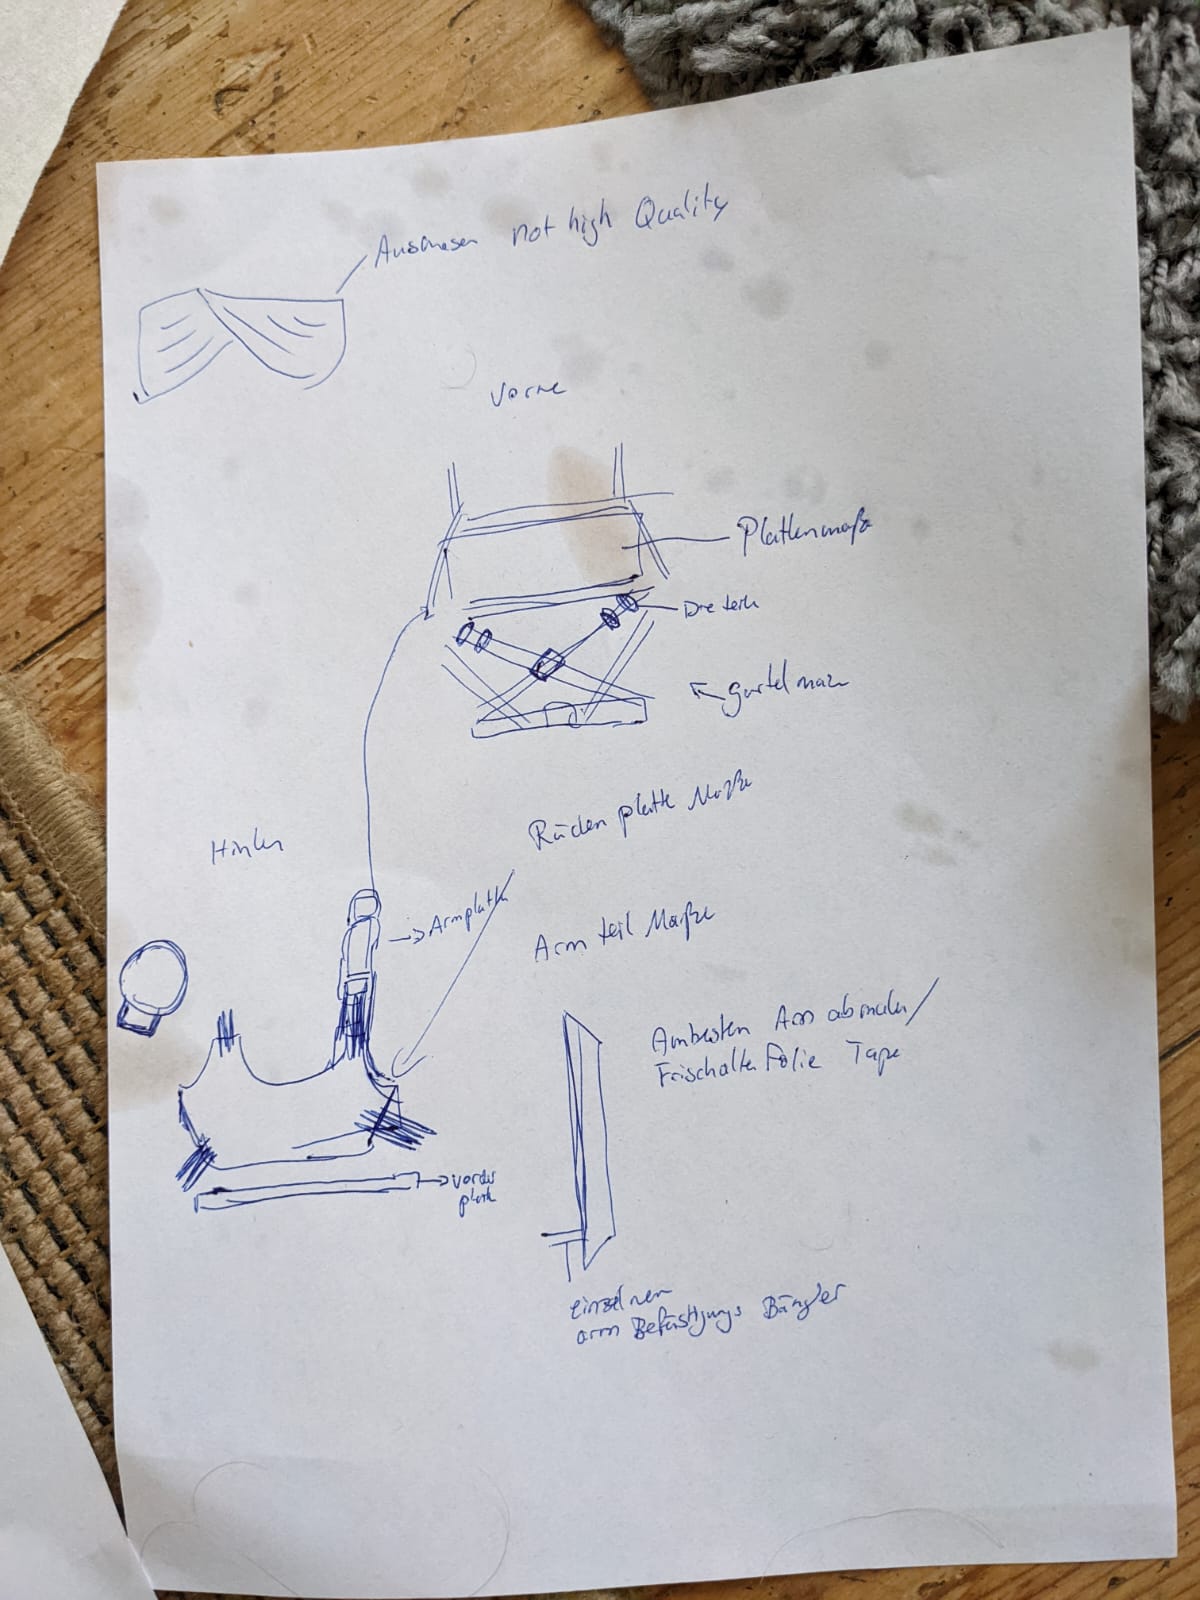 not high Quality
Vorne
Plattenmaße
Dreiteil
Hinten
Rücken platte Maße
→ Armplatte
Arm teil Maße
Ambesten Arm abmalen/
Frischalte Folie Tape
→ vorder
platte
einzelnen
arm Befästigungs Bänder